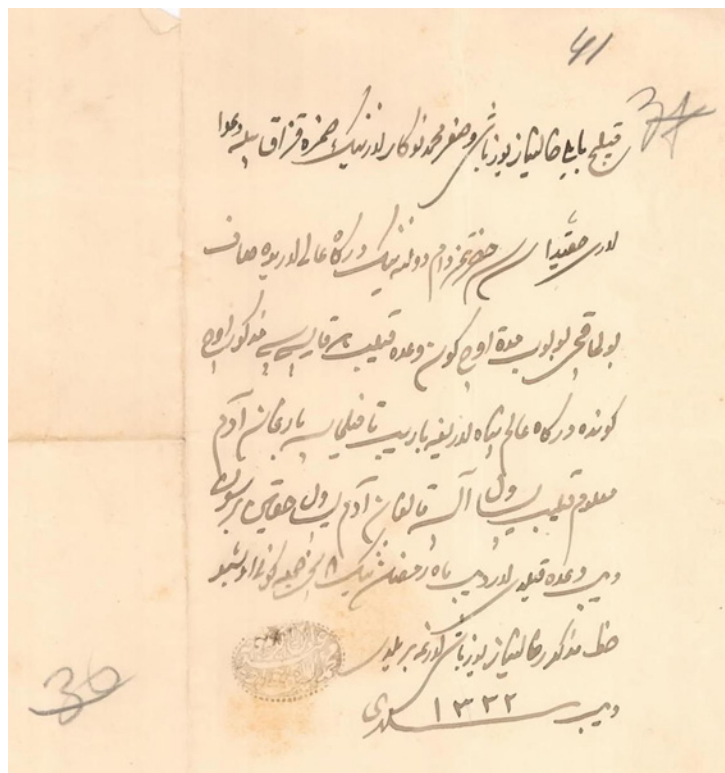 41
34
قیلیج بای خالنیاز یوزباشی و صفر محمد نوکارلارنینک حمزه قزاق بیله دعوا
لاری حقیدا حضرتیم دام دولته نینک درکاه عالی لاریده صاف
بولماقچی بولوب مدة اوچ کون وعده قیلیب قایسی سی مذکور اوچ
کونده درکاه عالم پناه لاریغه باریب تافیلماسه بارغان آدم
معلوم قیلیب یساول آلسه قالغان آدم یساول حقین برسون
دیب وعده قیلدی لار دیب ماه رمضان نینک ۸ لانجی جمعه کونی اوشبو
خط مذکور خالنیاز یوزباشی کوزیغه بریلدی
دیب سنه ۱۳۲۲
30